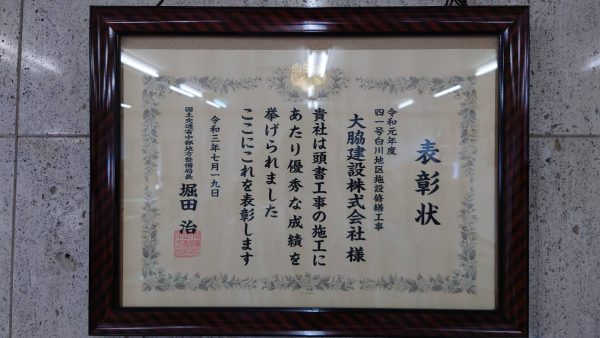 表彰状
令和元年度
四一号白川地区施設修繕工事
大脇建設株式会社 様
貴社は頭書工事の施工に
あたり優秀な成績を
挙げられました
ここにこれを表彰します
令和三年七月一九日
国土交通省中部地方整備局長 堀田 治